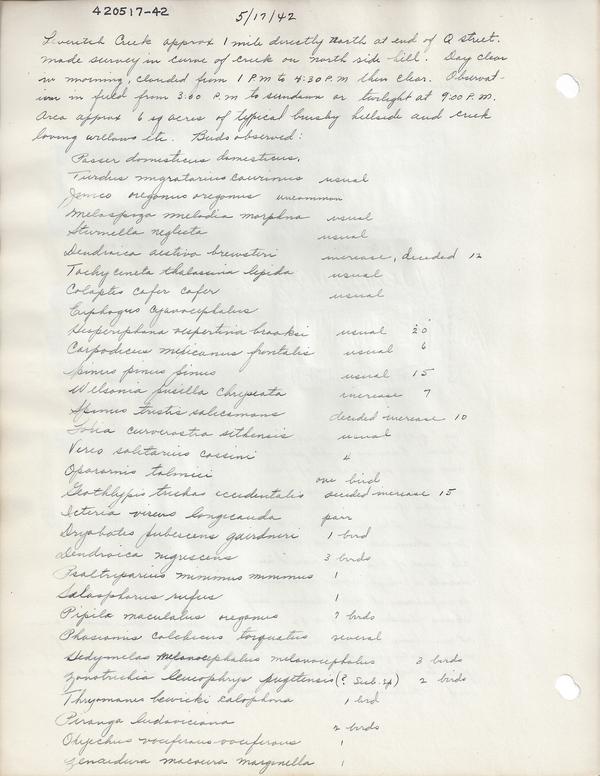 420517-42
5/17/42
Leveritch Creek approx 1 mile directly North at end of Q street.
made survey in curve of creek on north side hill. Day clear
in morning, clouded from 1 P.M to 4:30 P.M then clear. Observat-
ion in field from 3:00 P.M to sundown or twilight at 9:00 P.M.
Area approx 6 sq acres of typical brushy hillside and creek
loving willows etc. Birds observed:
Passer domesticus domesticus.
Turdus migratorius caurinus usual
Junco oreganus oreganus uncommon
Melospiza melodia morphna usual
Sturnella neglecta usual
Dendroica aestiva brewsteri increase, decided 12
Tachycineta thalassina lepida usual
Colaptes cafer cafer usual
Euphagus cyanocephalus
Hesperiphona vespertina brooksi usual 20
Carpodicus mexicanus frontalis usual 6
Spinus pinus pinus usual 15
Wilsonia pusilla chryseola increase 7
Spinus tristis salicamans decided increase 10
Loxia curverostra sitkensis usual
Vireo solitarius cassini 4
Oporornis tolmiei one bird
Geothlypis trichas occidentalis decided increase 15
Icteria virens longicauda pair
Dryobates pubescens gairdneri 1 bird
Dendroica nigrescens 3 birds
Psaltriparius minimus minimus 1
Selasphorus rufus 1
Pipilo maculatus oregonus 7 birds
Phasianis colchicus torquatus several
Hedymelas melanocephalus melanocephalus 3 birds
Zonotrichia leucophrys pugetensis (? Sub. sp) 2 birds
Thryomanes bewicki calophona 1 bird
Piranga ludoviciana 2 birds
Oxyechus vociferous vociferous 1
Zenaidura macroura marginella 1